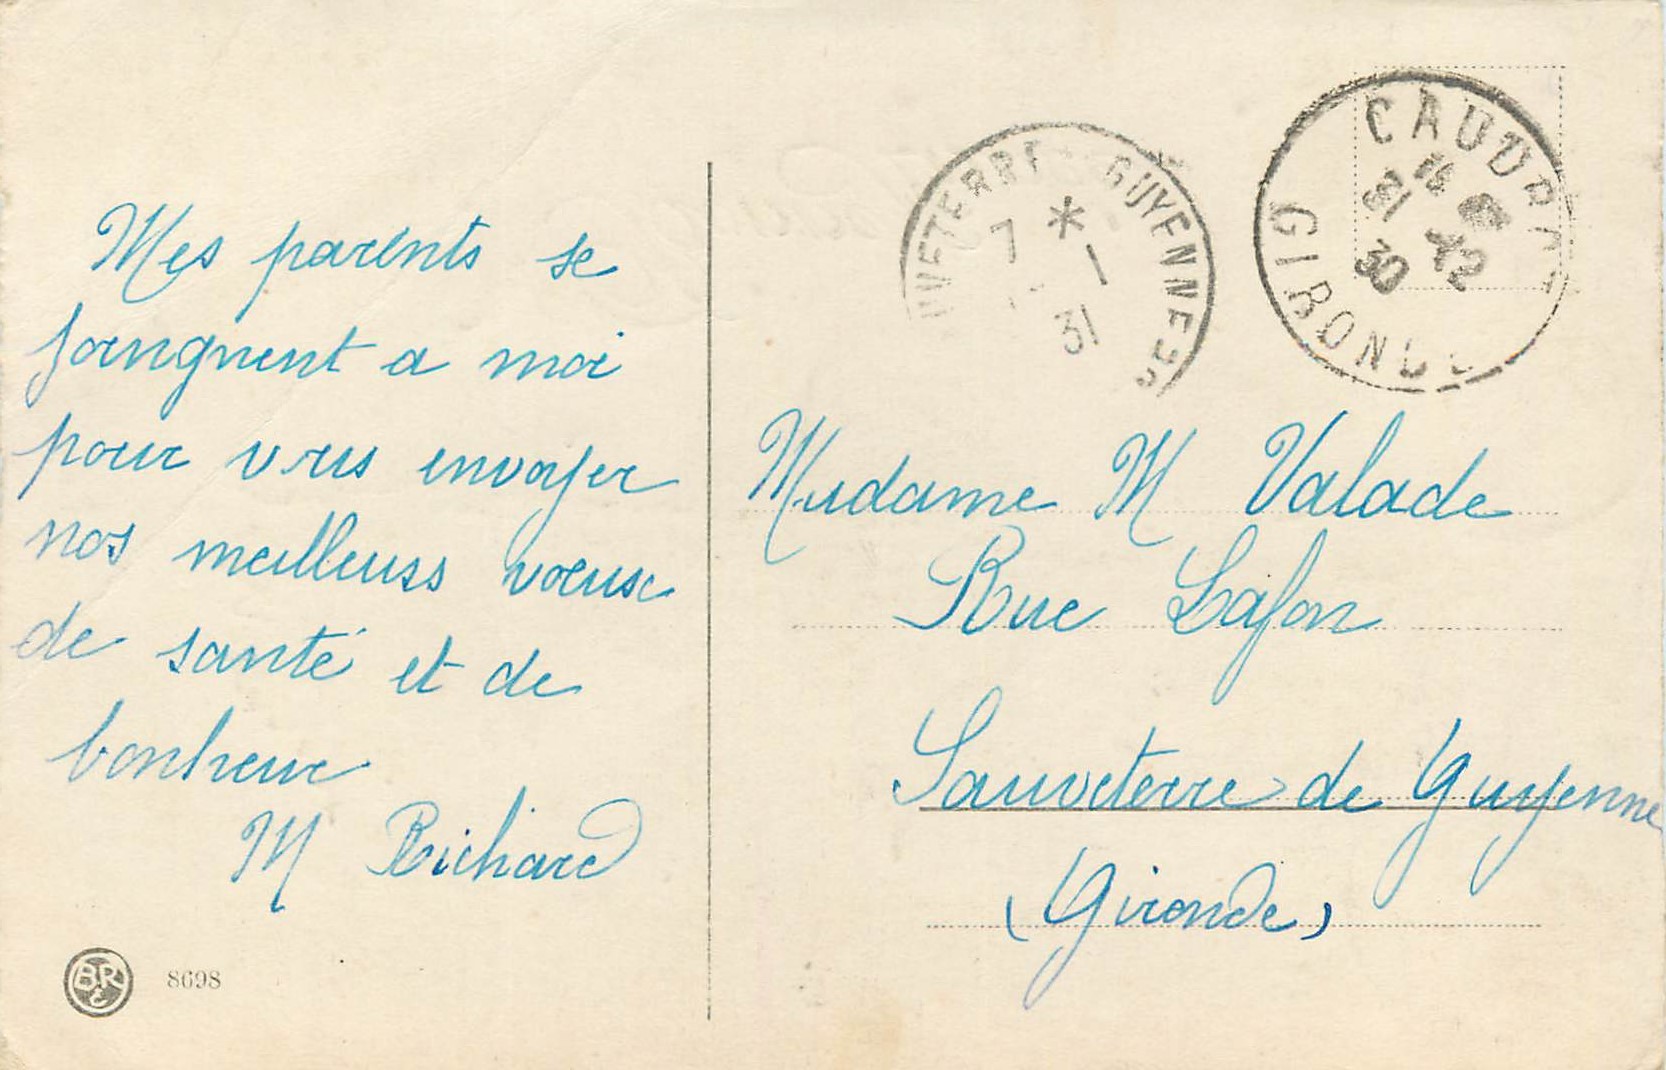 Mes parents se
joingnent a moi
pour vous envoyer
nos meilleurs voeux
de santé et de
bonheur
M Richard
BR
&
8698
UVETERRE GUYENNE
7 * 1
31
CAUD
31 12
30
GIRONDE
Madame M Valade
Rue Lafon
Sauveterre de Guyenne
(Gironde)